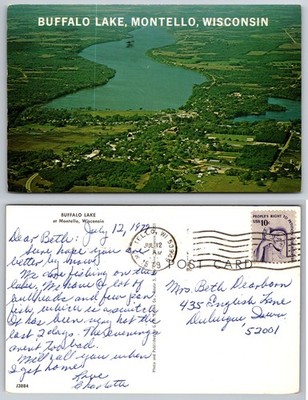 BUFFALO LAKE, MONTELLO, WISCONSIN
BUFFALO LAKE
at Montello, Wisconsin
July 12, 1979
Dear Beth:
Sure hope you are
better by now.
We are fishing on this
lake. We have a lot of
bullheads and few pan
fish, which is a
It has been very hot the
last 2 days. The
aren't too bad.
Will call you when
I get home.
Love
Charlotte
22684
POST CARD
MONTELLO, WIS
JUL 12
AM
1979
PEOPLE'S RIGHT TO
USA 10c
Mrs. Beth Dearborn
435 English Lane
Dubuque Iowa
52001